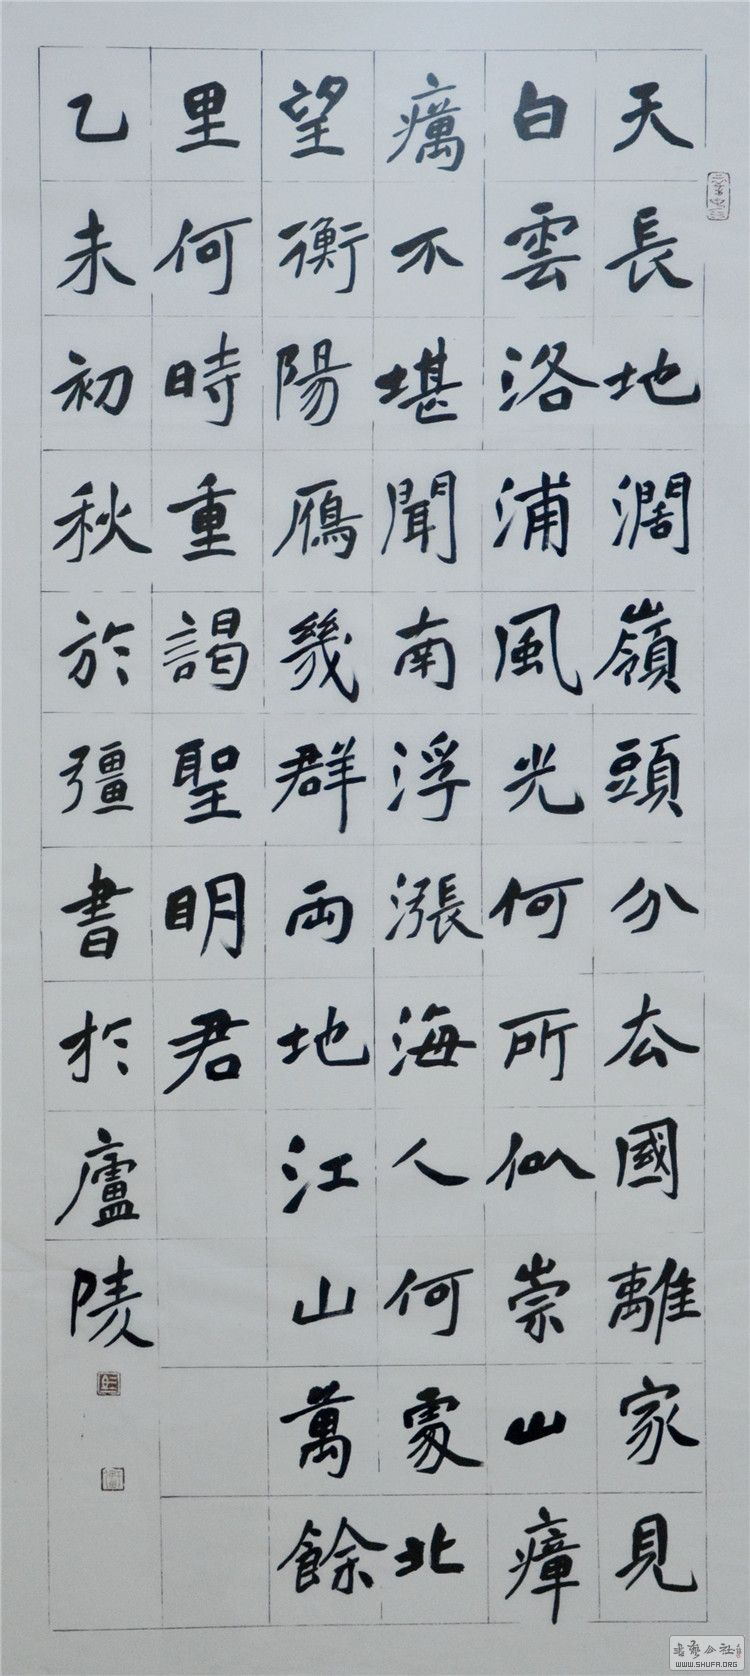 天長地濶嶺頭分厺國離家見
白雲洛浦風光何所似崇山瘴
癘不堪聞南浮漲海人何處北
望衡陽鴈幾群兩地江山萬餘
里何時重謁聖明君
乙未初秋於彊書於廬陵
書藝公社
WWW.SHUFA.ORG